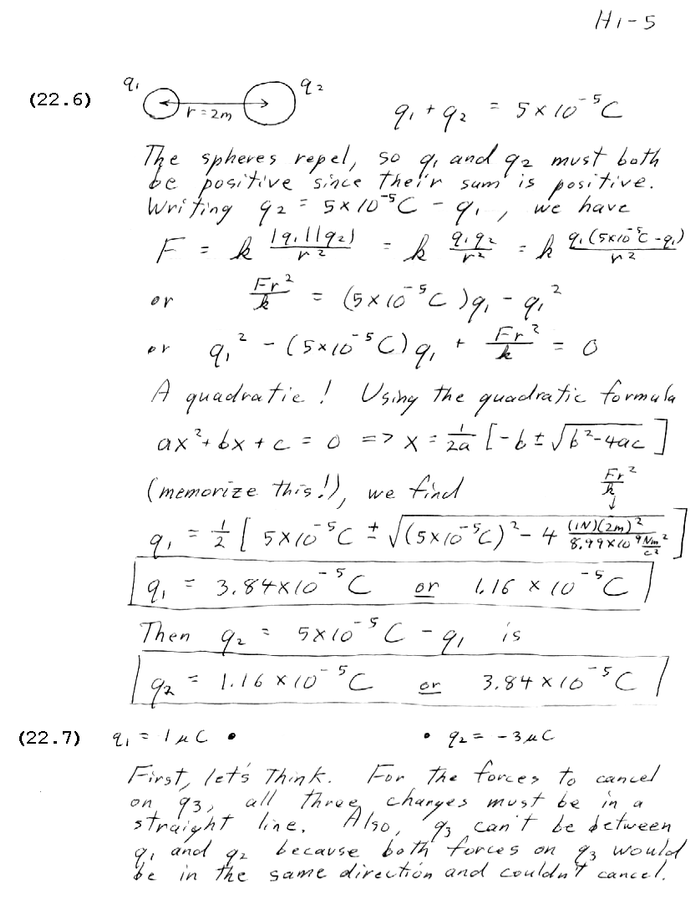 H1-5
(22.6) q₁ q₂ r=2m q₁ + q₂ = 5×10⁻⁵C
The spheres repel, so q₁ and q₂ must both
be positive since their sum is positive.
Writing q₂ = 5×10⁻⁵C - q₁, we have
F = k |q₁||q₂|/r² = k q₁q₂/r² = k q₁(5×10⁻⁵C-q₁)/r²
or Fr²/k = (5×10⁻⁵C)q₁ - q₁²
or q₁² - (5×10⁻⁵C)q₁ + Fr²/k = 0
A quadratic! Using the quadratic formula
ax²+bx+c = 0 => x = 1/2a [-b ± √(b²-4ac)]
(memorize this!), we find Fr²/k ↓
q₁ = 1/2 [5×10⁻⁵C ± √((5×10⁻⁵C)² - 4 (1N)(2m)²/8.99×10⁹ Nm²/C²)]
q₁ = 3.84×10⁻⁵C or 1.16×10⁻⁵C
Then q₂ = 5×10⁻⁵C - q₁ is
q₂ = 1.16×10⁻⁵C or 3.84×10⁻⁵C
(22.7) q₁ = 1μC • • q₂ = -3μC
First, let's think. For the forces to cancel
on q₃, all three charges must be in a
straight line. Also, q₃ can't be between
q₁ and q₂ because both forces on q₃ would
be in the same direction and couldn't cancel.